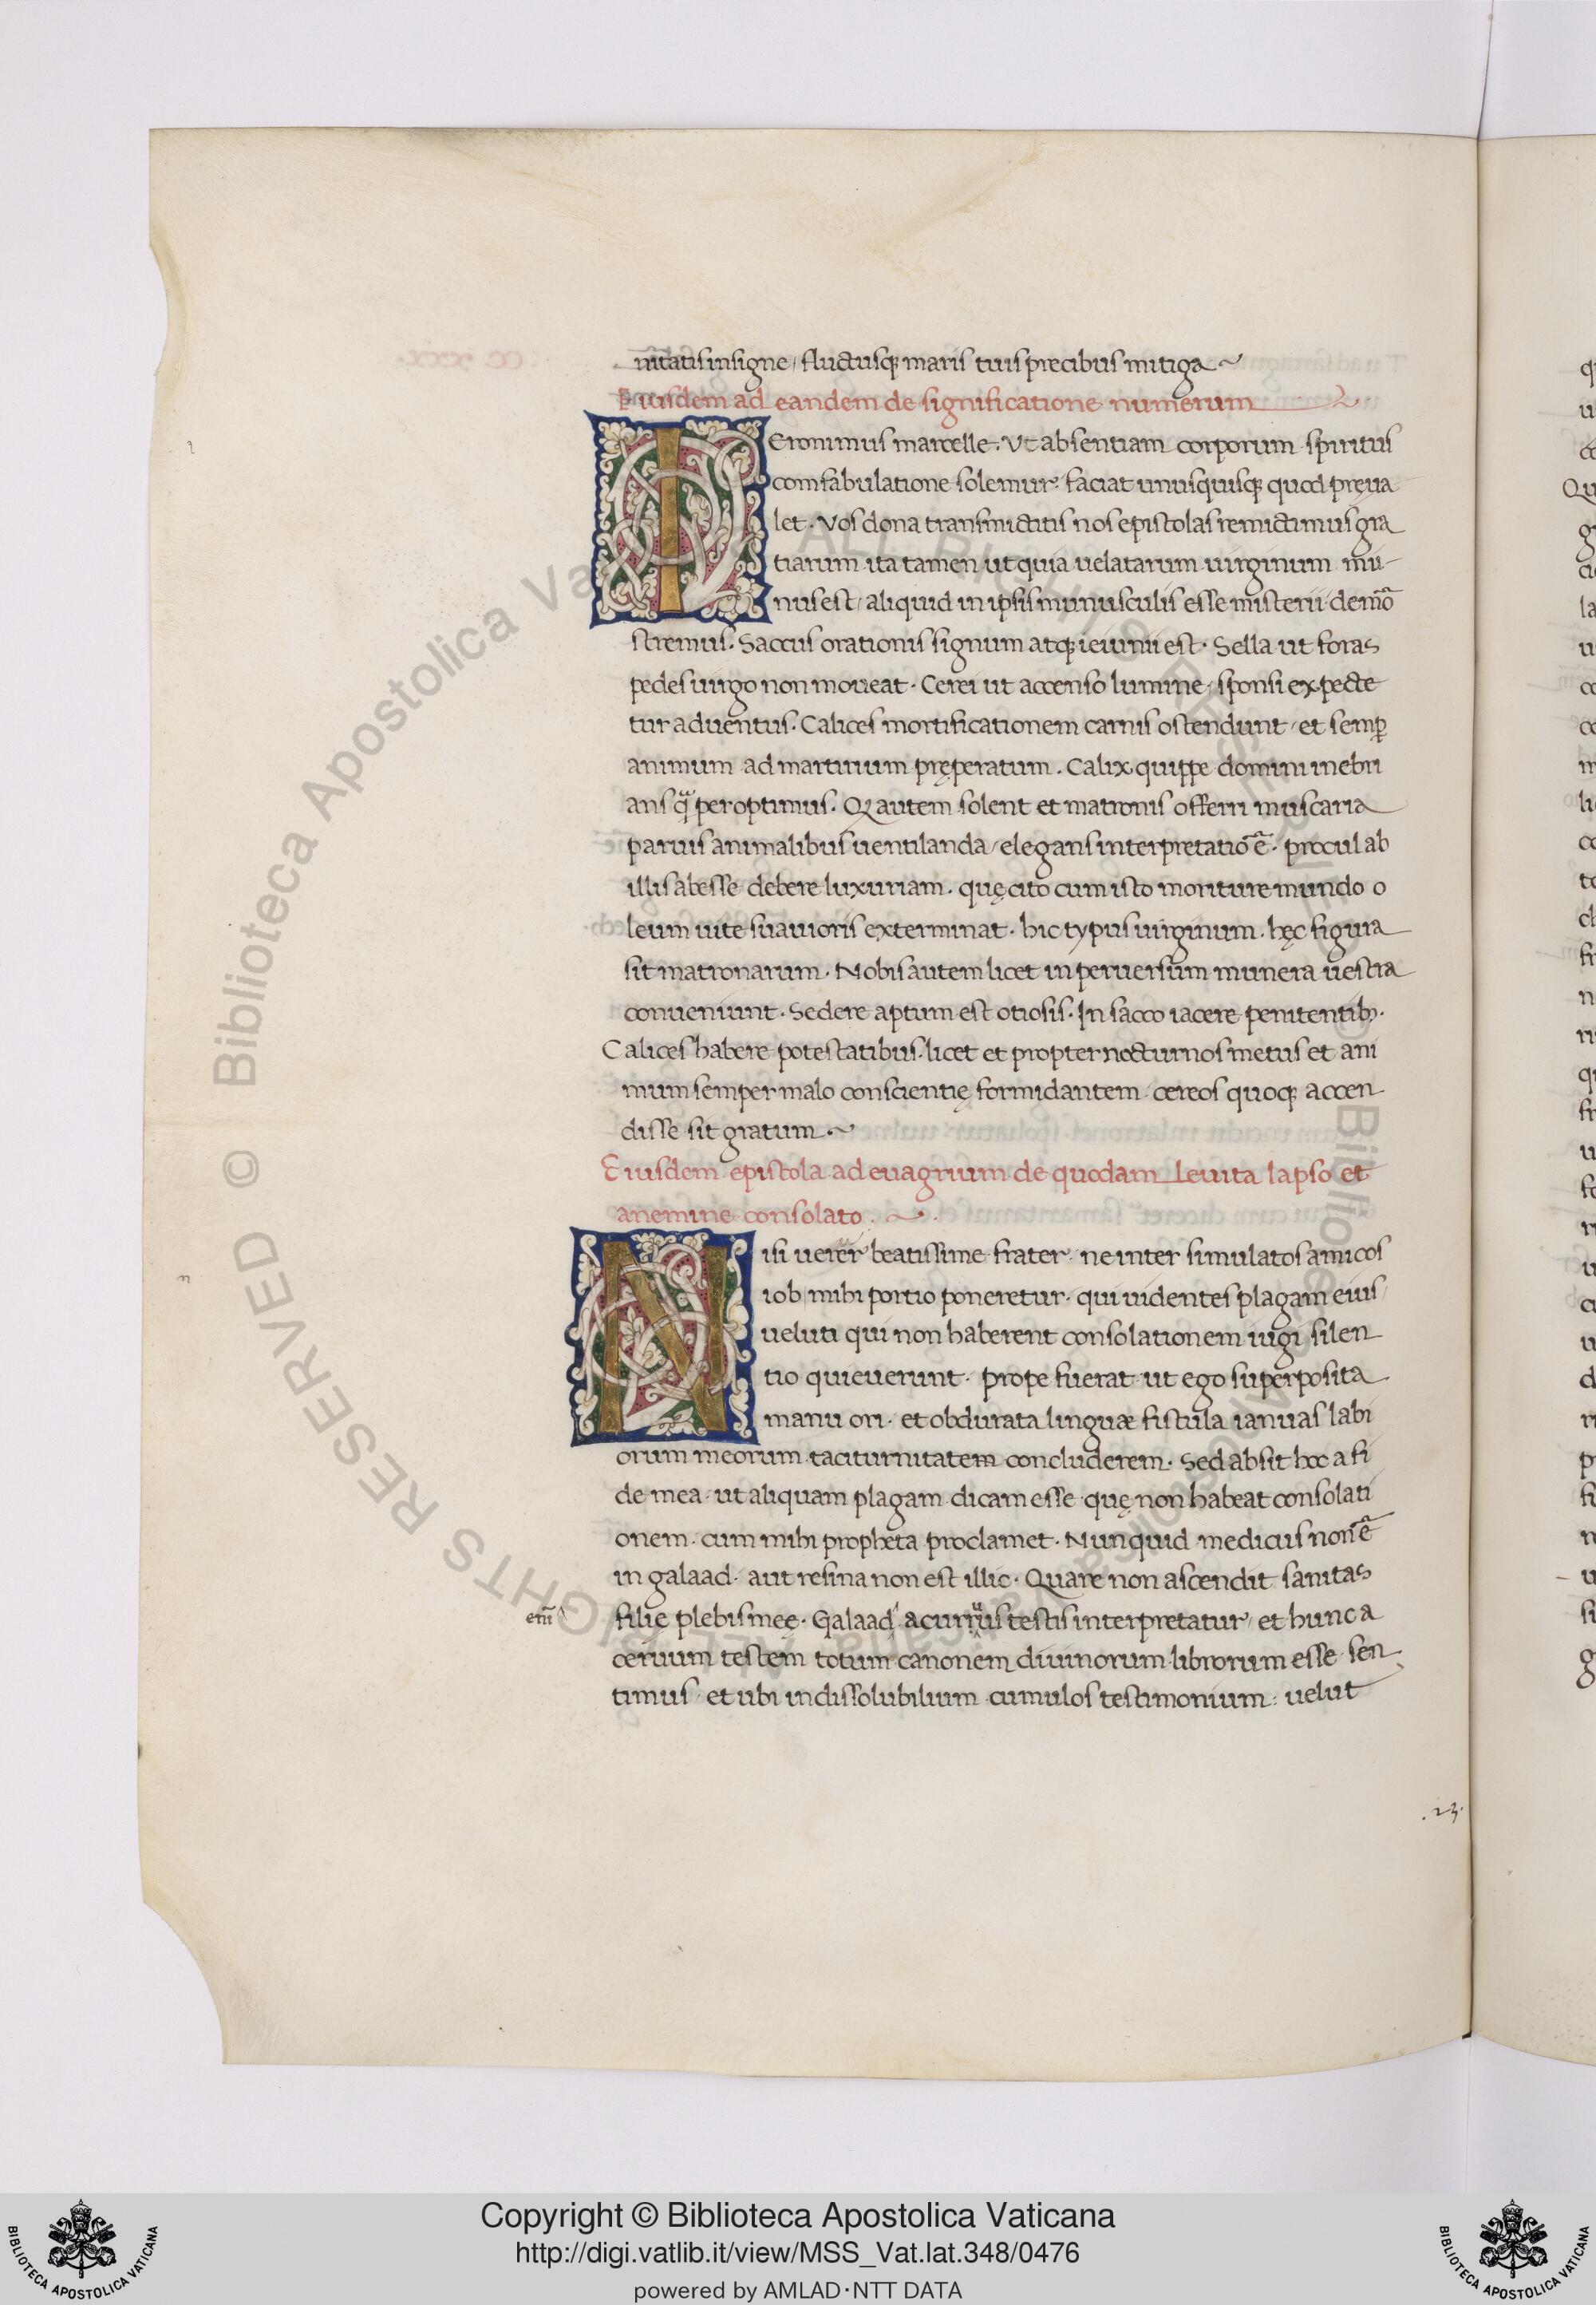 nitatis insigne / fluctusq; maris tuis precibus mitiga
Eiusdem ad eandem de significatione numerum
IEronimus marcelle. Vt absentiam corporum spiritus
comfabulatione solemur. faciat unusquisq; quod pręua
let. Vos dona transmictitis nos epistolas remictimus gra
tiarum ita tamen ut quia uelatarum uirginum mu-
nus est / aliquid in ipsis munusculis esse misterii demõ
stremus. Saccus orationis signum atq; ieiunii est. Sella ut foras
pedes uirgo non moueat. Cerei ut accenso lumine, sponsi expecte
tur aduentus. Calices mortificationem carnis ostendunt / et semp̱
animum ad martirium pręperatum. Calix quippe domini inebri
ans q̃ per optimus. Q autem solent et matronis offerri muscaria
paruis animalibus uentilanda / elegans interpretatio ẽ. procul ab
illis abesse debere luxuriam. quę cito cum isto moriture mundo o
leum uite suauioris exterminat. hic typus uirginum. hęc figura
sit matronarum. Nobis autem licet in peruersum munera uestra
conueniunt. Sedere aptum est otiosis. In sacco iacere penitentib;.
Calices habere potestatibus. licet et propter nocturnos metus et ani
mum semper malo conscientię formidantem cereos quoq; accen
disse sit gratum.
Eiusdem epistola ad euagrium de quodam Leuita lapso et
anemine consolato.
Nisi uerer beatissime frater. ne inter simulatos amicos
iob mihi portio poneretur. qui uidentes plagam eius
ueluti qui non haberent consolationem iugi silen
tio quieuerunt. prope fuerat ut ego superposita
manu ori. et obdurata linguæ fistula ianuas labi
orum meorum taciturnitatem concluderem. Sed absit hoc a fi
de mea. ut aliquam plagam dicam esse quę non habeat consolati
onem. cum mihi propheta proclamet. Nunquid medicus non ẽ
in galaad. aut resina non est illic. Quare non ascendit sanitas
filie plebis meę. Galaad acuruus testis interpretatur / et hunc a
ceruum testem totum canonem diuinorum librorum esse sen
timus / et ubi indissolubilium cumulos testimonium: uelut
.23.
© Biblioteca Apostolica Vaticana ALL RIGHTS RESERVED
Copyright © Biblioteca Apostolica Vaticana
http://digi.vatlib.it/view/MSS_Vat.lat.348/0476
powered by AMLAD·NTT DATA
BIBLIOTECA APOSTOLICA VATICANA
BIBLIOTECA APOSTOLICA VATICANA